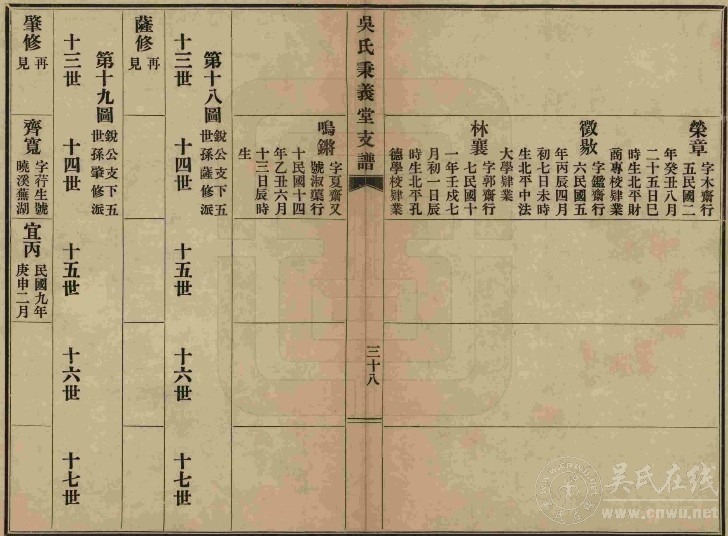 榮章
字木齋行
五民國二
年癸丑八月
二十五日巳
時生北平財
商專校肄業
徵敭
字鑑齋行
六民國五
年丙辰四月
初七日未時
生北平中法
大學肄業
林襄
字郭齋行
七民國十
一年壬戌七
月初一日辰
時生北平孔
德學校肄業
吳氏秉義堂支譜
三十八
鳴鏘
字夏齋又
號淑蕖行
十民國十四
年乙丑六月
十三日辰時
生
第十八圖
銳公支下五
世孫薩修派
十三世 十四世 十五世 十六世 十七世
薩修
再
見
第十九圖
銳公支下五
世孫肇修派
十三世 十四世 十五世 十六世 十七世
肇修
再
見
齊寬
字荇生號
曉溪蕪湖
宜丙
民國九年
庚申二月
吳氏在线
www.cnwu.net